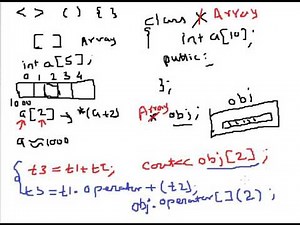 < > ( ) { }
[ ] Array
int a[5];
0 1 2 3 4
1000
a[2] → *(a+2)
a ≈ 1000
class Array
{
int a[10];
public:
};
Array obj;
obj
cout<< obj[2];
obj.operator[](2);
{ t3 = t1+t2;
t3 = t1.operator+(t2);